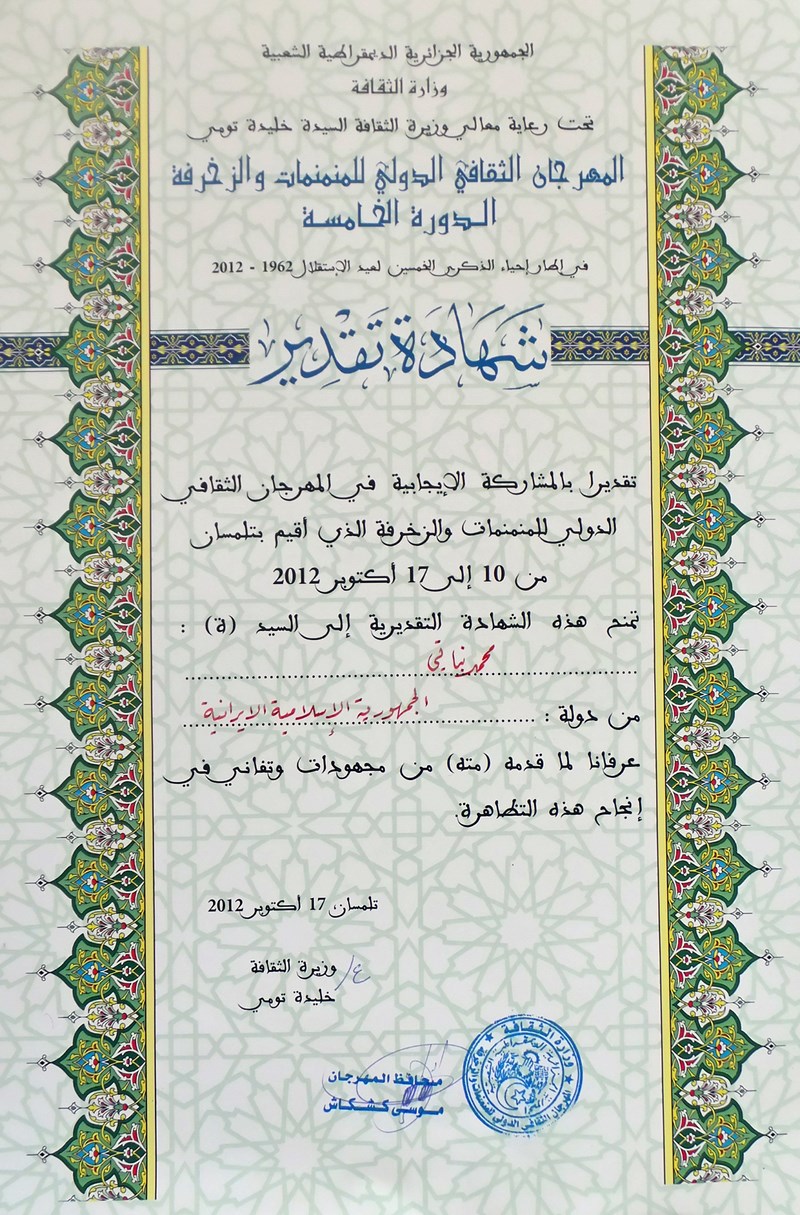 الجمهورية الجزائرية الديمقراطية الشعبية
وزارة الثقافة
تحت رعاية معالي وزيرة الثقافة السيدة خليدة تومي
المهرجان الثقافي الدولي للمنمنمات والزخرفة
الدورة الخامسة
في إطار إحياء الذكرى الخمسين لعيد الإستقلال 1962 - 2012
شَهَادَة تَقْدِير
تقديرا بالمشاركة الإيجابية في المهرجان الثقافي
الدولي للمنمنمات والزخرفة الذي أقيم بتلمسان
من 10 إلى 17 أكتوبر 2012
تمنح هذه الشهادة التقديرية إلى السيد (ة) :
محمد نباتي
من دولة : الجمهورية الإسلامية الايرانية
عرفانا لما قدمه (مته) من مجهودات وتفاني في
إنجاح هذه التظاهرة.
تلمسان 17 أكتوبر 2012
ع/ وزيرة الثقافة
خليدة تومي
محافظ المهرجان
موسى كشكاش
وزارة الثقافة